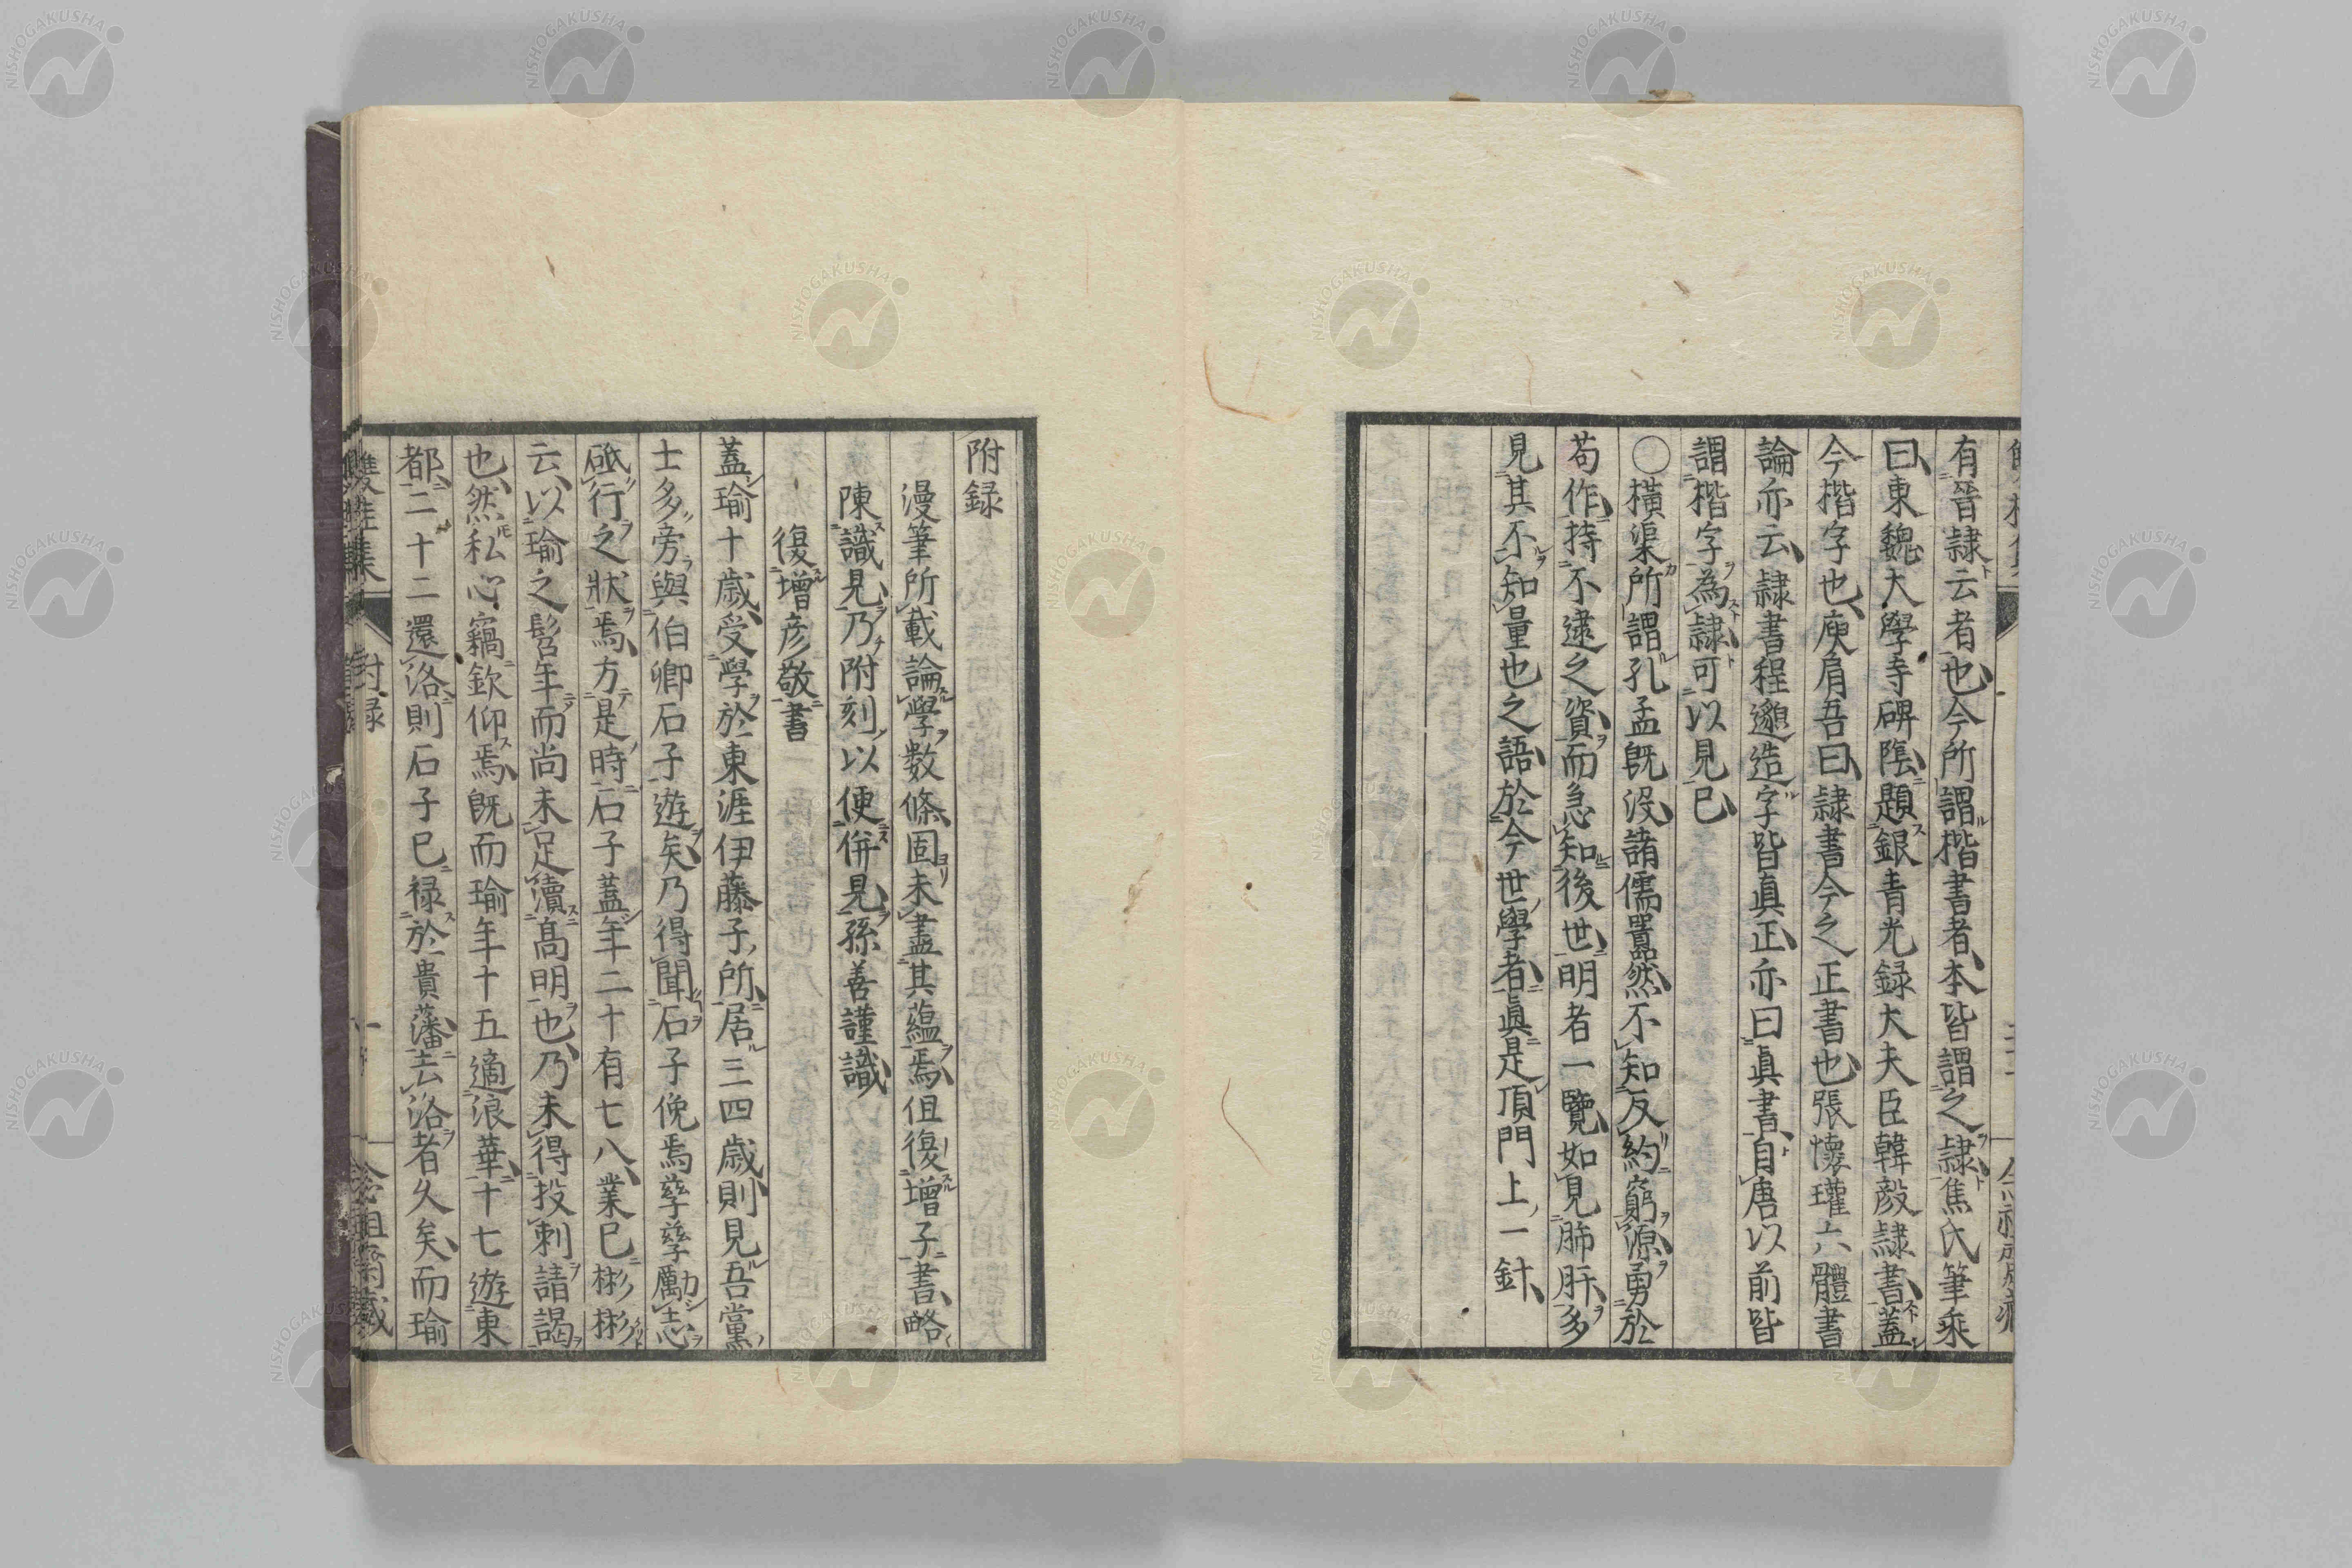 有晉隸云者也今所謂楷書者本皆謂之隸焦氏筆乘
曰東魏大學寺碑陰題銀青光録大夫臣韓毅隸書蓋
今楷字也庾肩吾曰隸書今之正書也張懷瓘六體書
論亦云隸書程邈造字皆真正亦曰眞書自唐以前皆
謂楷字為隸可以見已
〇橫渠所謂孔孟既沒諸儒囂然不知反約窮源勇於
苟作持不逮之資而急知後世明者一覽如見肺肝多
見其不知量也之語於今世學者眞是頂門上一針
附録
漫筆所載論學數條固未盡其蘊焉但復增子書略
陳識見乃附刻以便併見孫善謹識
復增彦敬書
蓋瑜十歲受學於東涯伊藤子所居三四歲則見吾黨
士多旁與伯卿石子遊矣乃得聞石子俛焉孳孳勵志
砥行之狀焉方是時石子蓋年二十有七八業已彬彬
云以瑜之髫年而尚未足瀆高明也乃未得投刺請謁
也然私心竊欽仰焉既而瑜年十五適浪華十七遊東
都二十二還洛則石子已禄於貴藩去洛者久矣而瑜
NISHOGAKUSHA